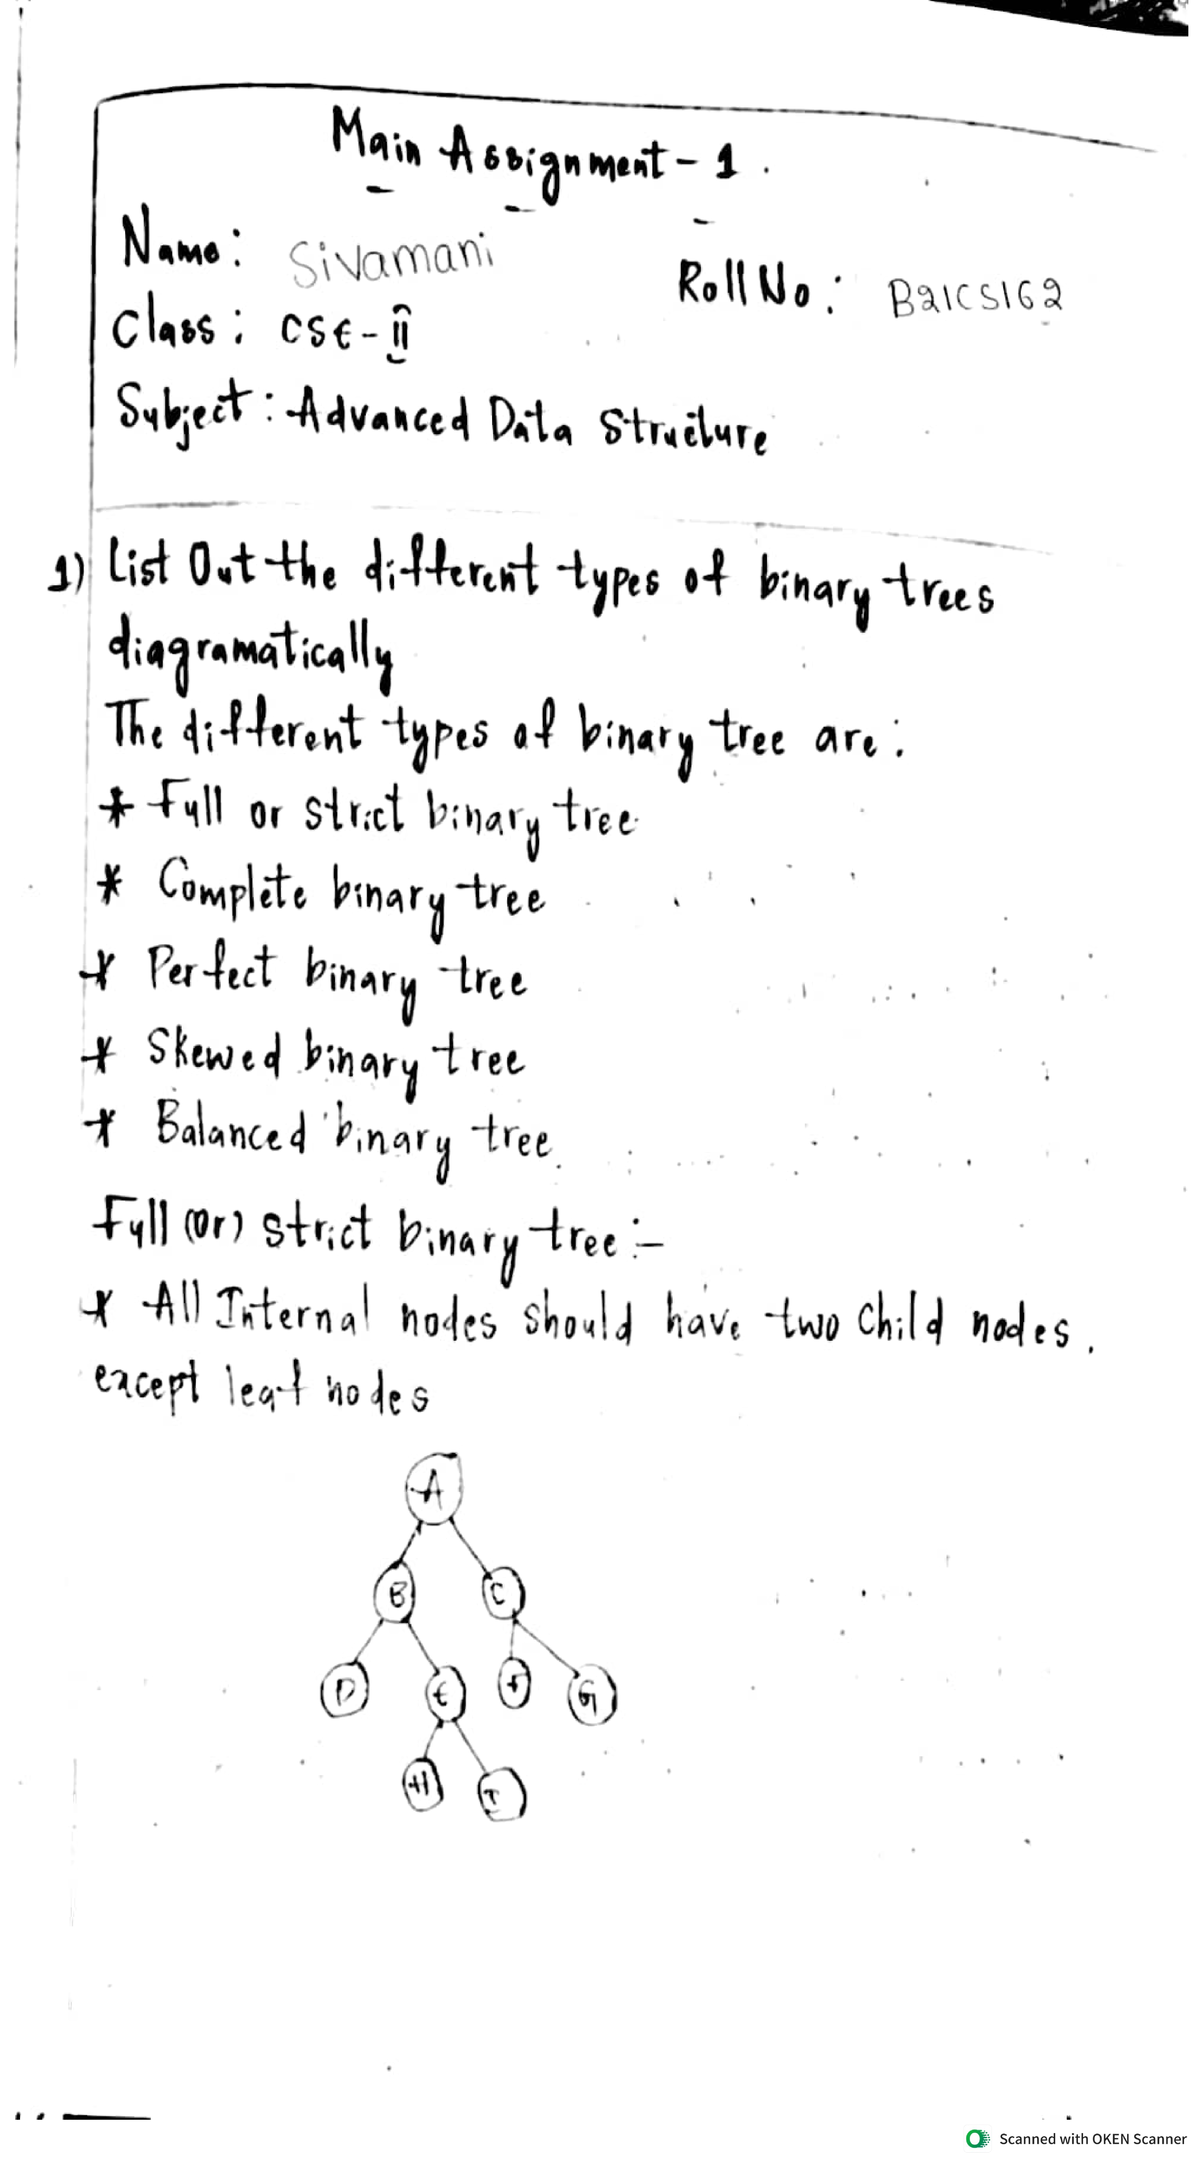 Main Assignment - 1.
Name: Sivamani
Roll No: B21CS162
Class: CSE - II
Subject: Advanced Data Structure
1) List Out the different types of binary trees
diagramatically
The different types of binary tree are:
* Full or strict binary tree
* Complete binary tree
* Perfect binary tree
* Skewed binary tree
* Balanced binary tree.
Full (or) strict binary tree :-
* All Internal nodes should have two child nodes.
except leaf nodes
A
B C
D E F G
H I
Scanned with OKEN Scanner